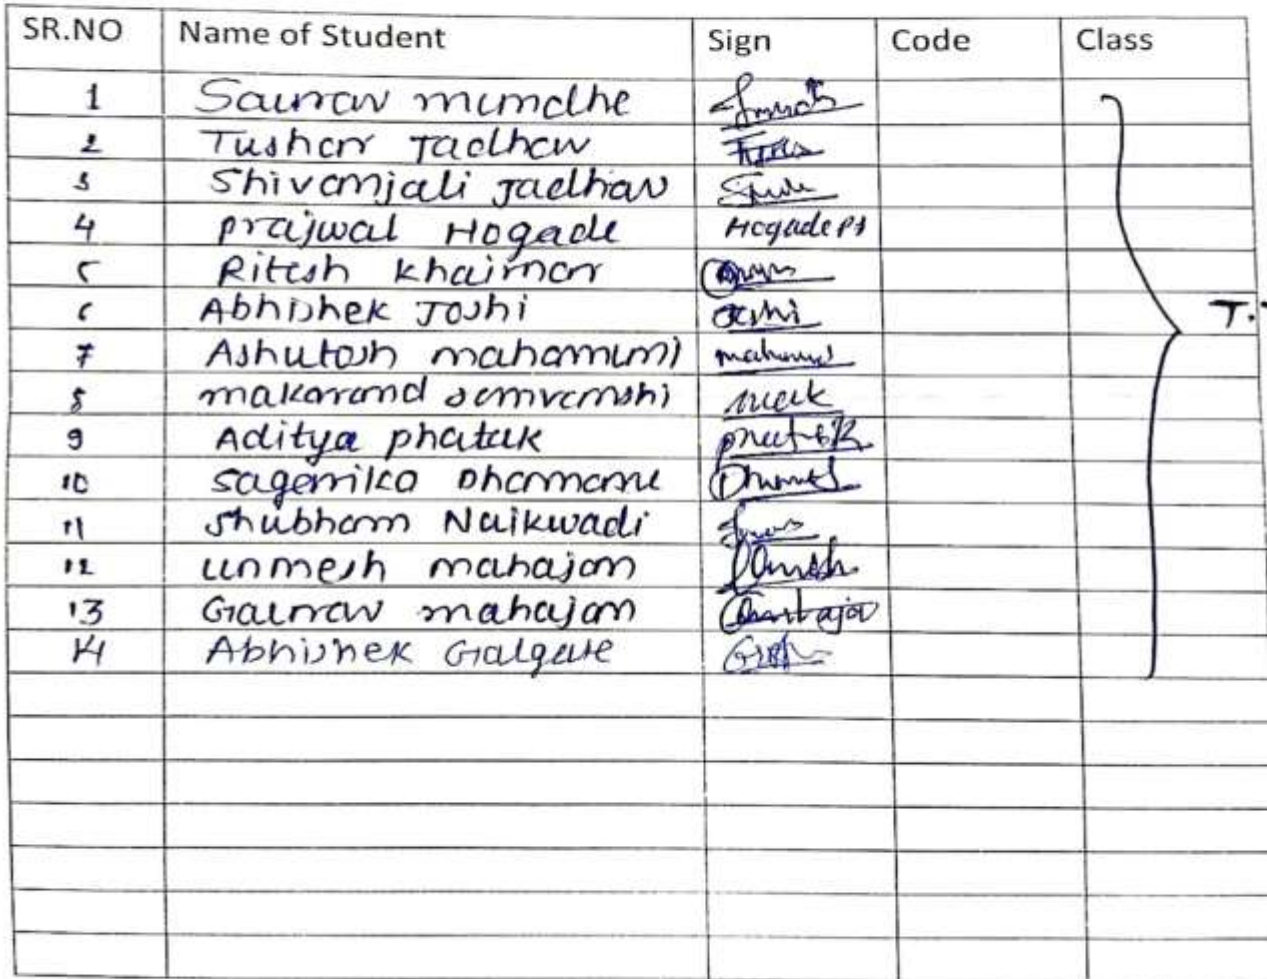 SR.NO Name of Student Sign Code Class
1 Saurav mundhe
2 Tushar Jadhav
3 Shivanjali Jadhav
4 prajwal Hogade Hogade PS
5 Ritesh khairnar
6 Abhishek Joshi Joshi
7 Ashutosh mahamuni
8 makarand somvamshi
9 Aditya phatak
10 sagarika Dhanmane
11 Shubham Naikwadi
12 unmesh mahajan
13 Gaurav mahajan
14 Abhishek Galgate